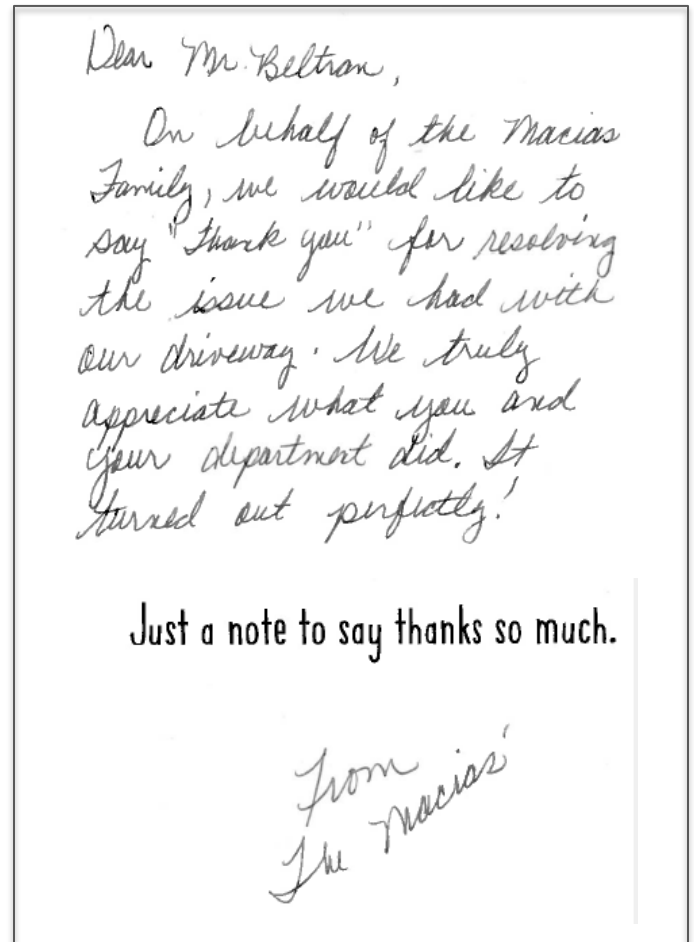 Dear Mr. Beltran,
On behalf of the Macias
Family, we would like to
say "Thank you" for resolving
the issue we had with
our driveway. We truly
appreciate what you and
your department did. It
turned out perfectly!
Just a note to say thanks so much.
From
The Macias'